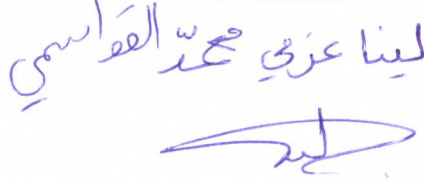 لينا عزمي محمّد القواسمي